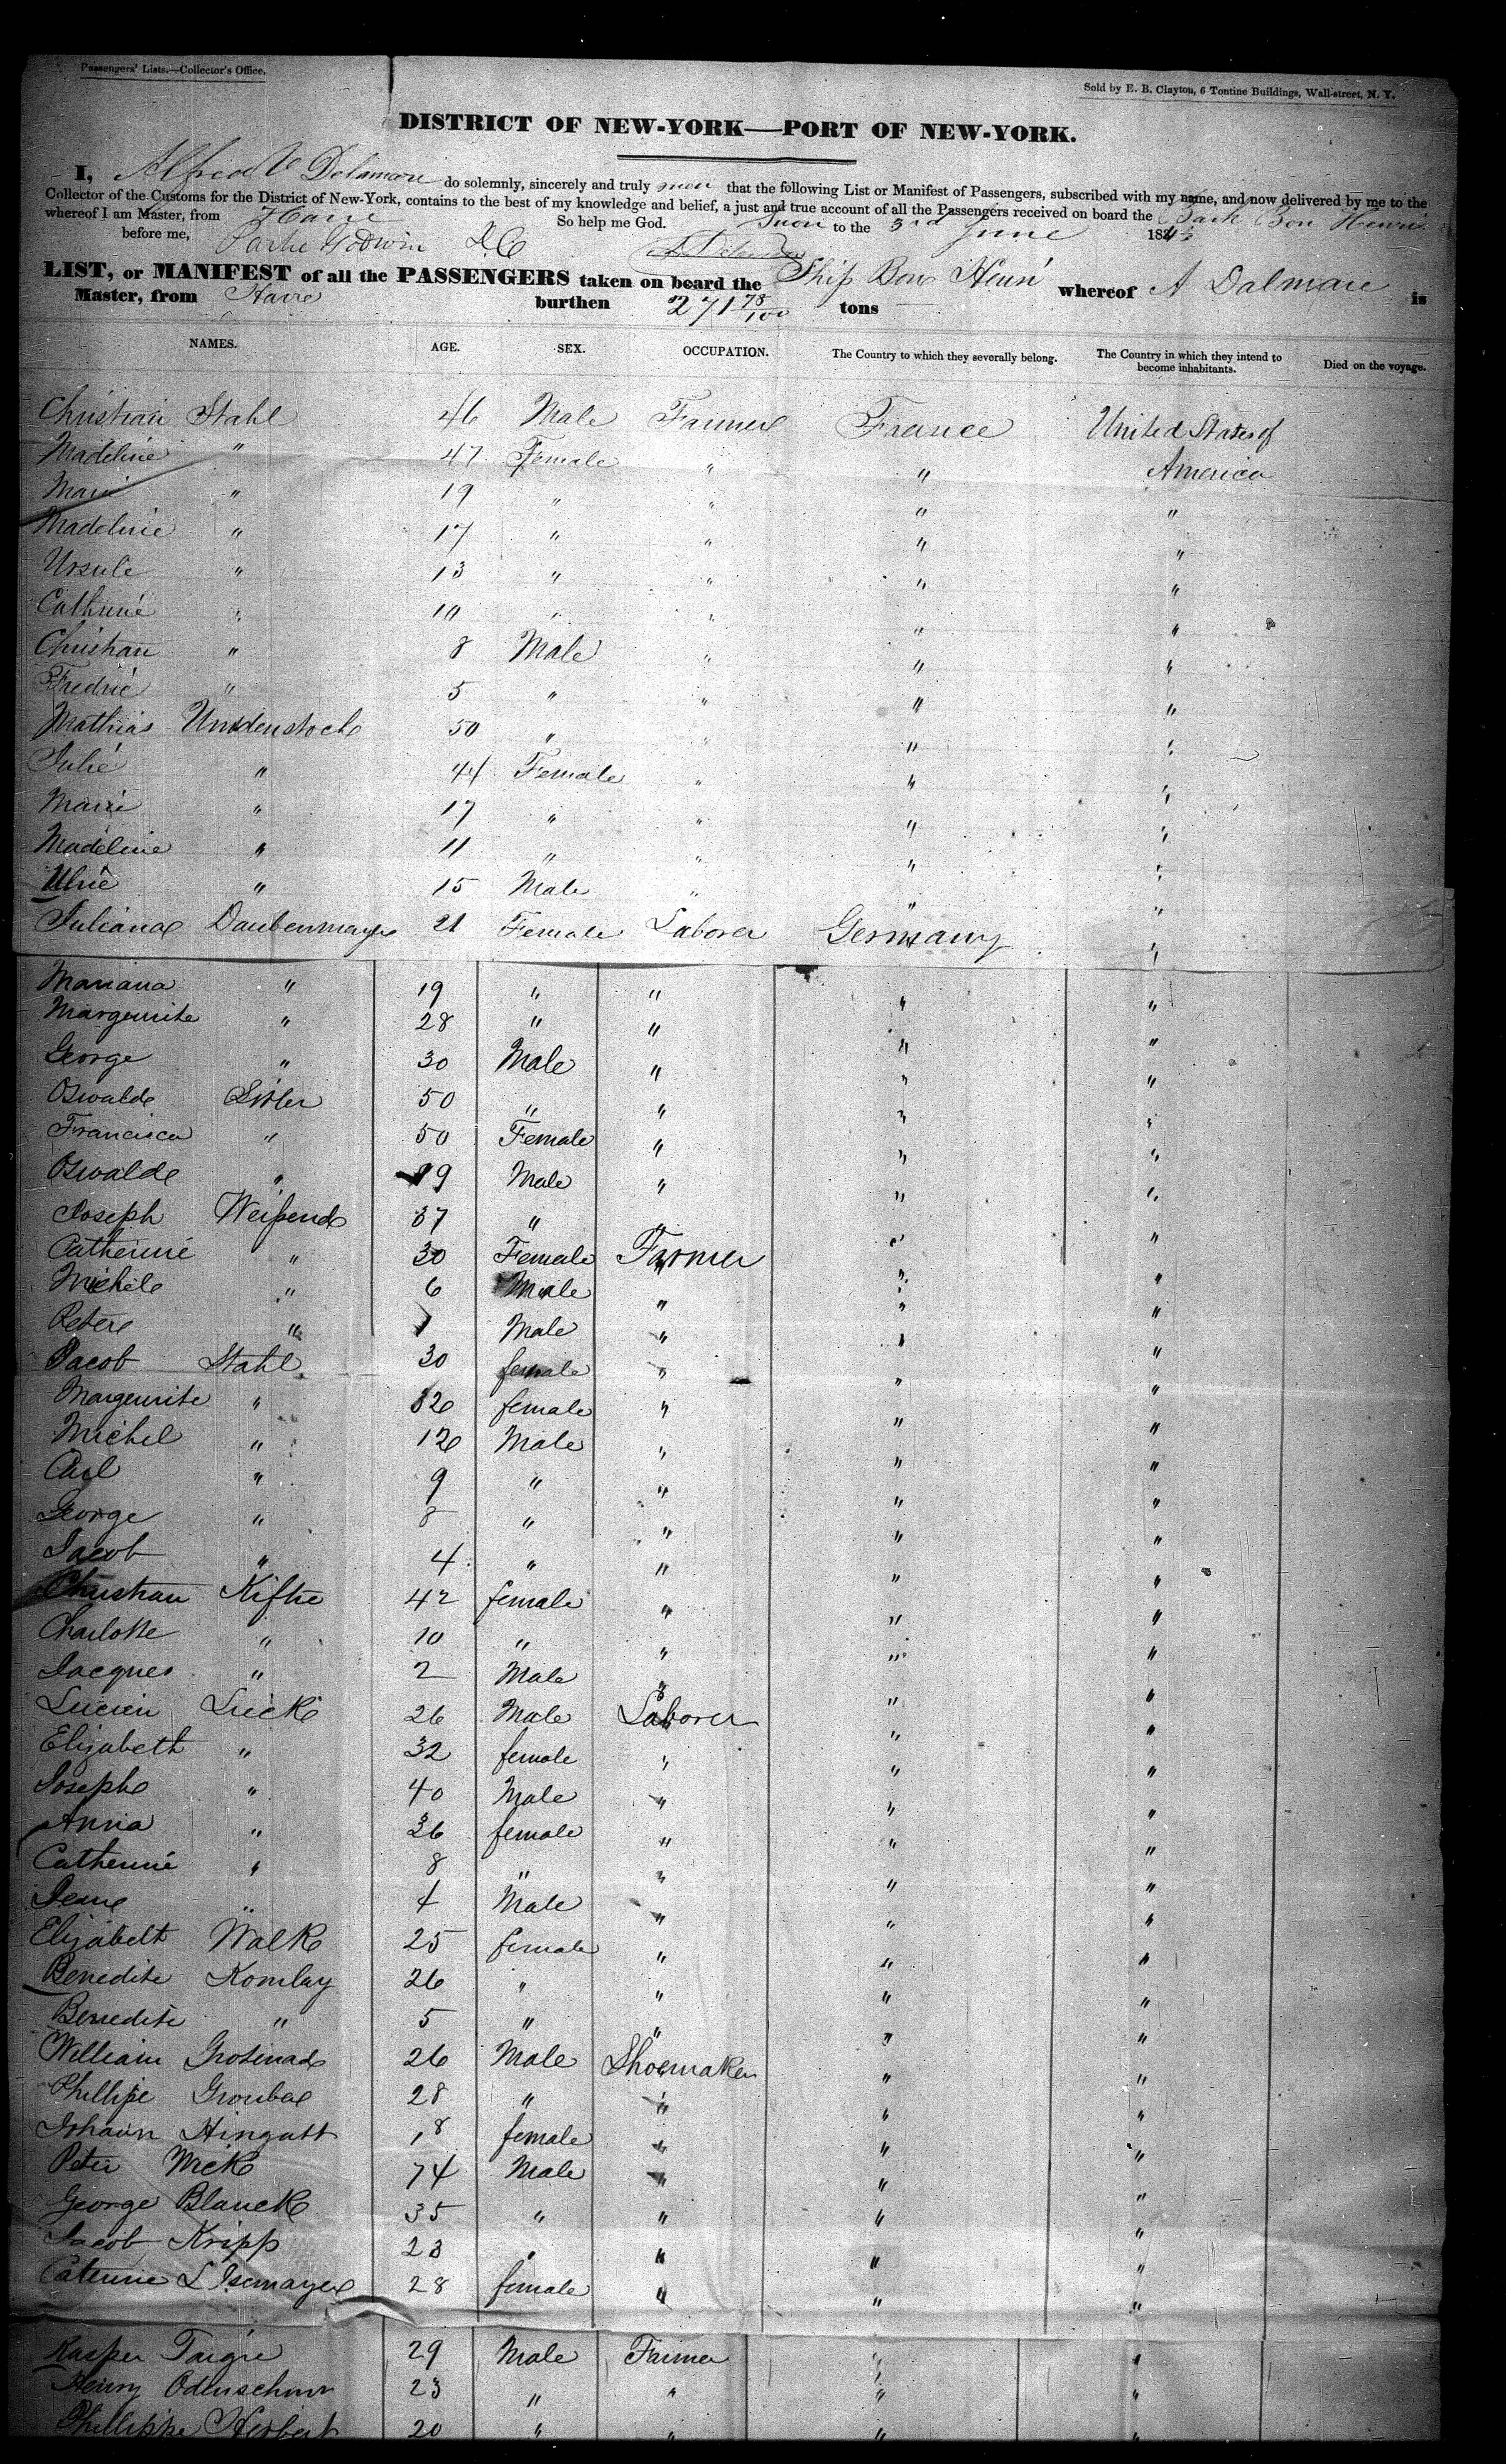 Passengers' Lists.—Collector's Office.
Sold by E. B. Clayton, 6 Tontine Buildings, Wall-street, N. Y.
DISTRICT OF NEW-YORK—PORT OF NEW-YORK.
I, Alfred V Delamare do solemnly, sincerely and truly that the following List or Manifest of Passengers, subscribed with my name, and now delivered by me to the
Collector of the Customs for the District of New-York, contains to the best of my knowledge and belief, a just and true account of all the Passengers received on board the Bark Bon Henri
whereof I am Master, from Havre So help me God. to the 3rd June 184
before me, Parke Godwin D C
LIST, or MANIFEST of all the PASSENGERS taken on board the Ship Bon Henri whereof A Dalmare is
Master, from Havre burthen 271 78/100 tons
NAMES. AGE. SEX. OCCUPATION. The Country to which they severally belong. The Country in which they intend to become inhabitants. Died on the voyage.
Christian Stahl 46 Male Farmer France United States of
Madeline " 47 Female " " America
Marie " 19 " " " "
Madeline " 17 " " " "
Ursule " 13 " " " "
Catherine " 10 " " " "
Christian " 8 Male " " "
Fredric " 5 " " " "
Mathias Undenstock 50 " " " "
Julie " 44 Female " " "
Marie " 17 " " " "
Madeline " 11 " " " "
Ulric " 15 Male " " "
Juliana Daubenmayer 21 Female Laborer Germany "
Mariana " 19 " " " "
Marguerite " 28 " " " "
George " 30 Male " " "
Oswalde Sitler 50 " " " "
Francisca " 50 Female " " "
Oswalde " 19 Male " " "
Joseph Weisend 37 " " " "
Catherine " 30 Female Farmer " "
Michele " 6 Male " " "
Peter " Male " " "
Jacob Stahl 30 female " " "
Marguerite " 32 female " " "
Michel " 12 Male " " "
Carl " 9 " " " "
George " 8 " " " "
Jacob " 4 " " " "
Christian Kiftre 42 female " " "
Charlotte " 10 " " " "
Jacques " 2 Male " " "
Lucien Lucke 26 Male Laborer " "
Elizabeth " 32 female " " "
Josephe " 40 Male " " "
Anna " 36 female " " "
Catherine " 8 " " " "
Jeane " 4 Male " " "
Elizabeth Walk 25 female " " "
Benedite Komlay 26 " " " "
Benedite " 5 " " " "
William Grosinade 26 Male Shoemaker " "
Phillipe Grouba 28 " " " "
Johann Hingatt 18 female " " "
Peter Mick 74 Male " " "
George Blanck 35 " " " "
Jacob Kripp 23 " " " "
Caterine L Isemayer 28 female " " "
Kasper Taigre 29 Male Farmer " "
Henry Odenschum 23 " " " "
Phillippe Herbert 20 " " " "